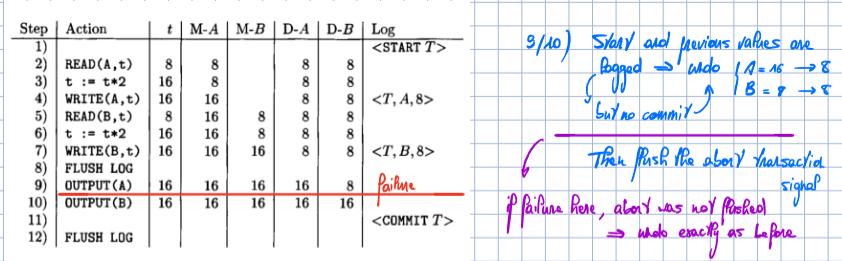 Step Action t M-A M-B D-A D-B Log
1) <START T>
2) READ(A,t) 8 8 8 8
3) t := t*2 16 8 8 8
4) WRITE(A,t) 16 16 8 8 <T, A, 8>
5) READ(B,t) 8 16 8 8 8
6) t := t*2 16 16 8 8 8
7) WRITE(B,t) 16 16 16 8 8 <T, B, 8>
8) FLUSH LOG
9) OUTPUT(A) 16 16 16 16 8 failure
10) OUTPUT(B) 16 16 16 16 16
11) <COMMIT T>
12) FLUSH LOG
9/10) Start and previous values are
logged ⇒ undo { A = 16 → 8
B = 8 → 8
but no commit
Then flush the abort transaction
signal
if failure here, abort was not flushed
⇒ undo exactly as before